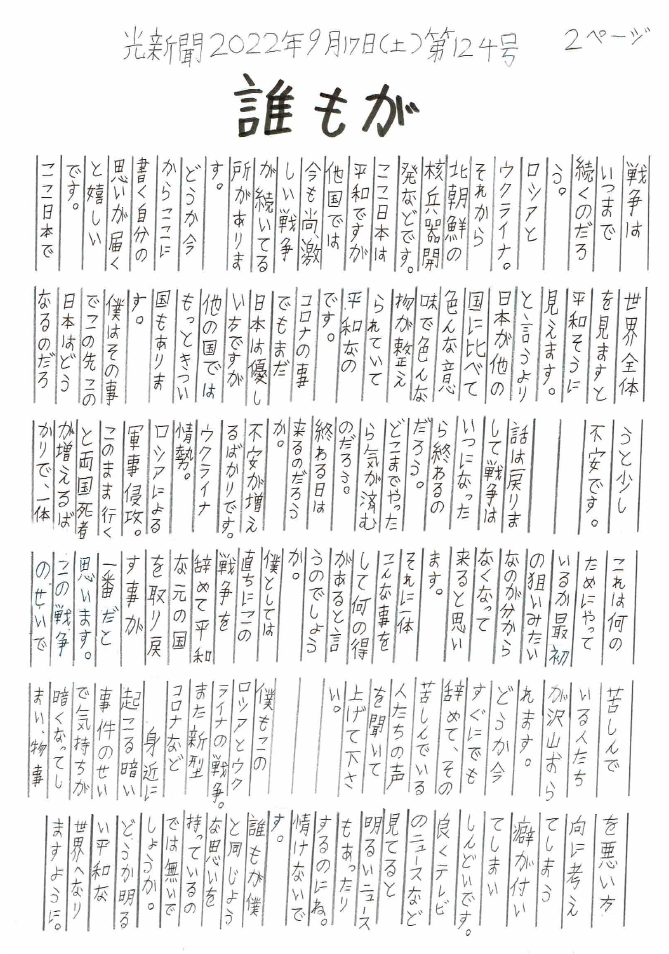 光新聞2022年9月17日(土)第124号
2ページ
誰もが
戦争は
いつまで
続くのだろ
う。
ロシアと
ウクライナ。
それから
北朝鮮の
核兵器開
発などです。
ここ日本は
平和ですが
他国では
今も尚、激
しい戦争
が続いてる
所がありま
す。
どうか今
からここに
書く自分の
思いが届く
と嬉しい
です。
ここ日本で
世界全体
を見ますと
平和そうに
見えます。
と、言うより
日本が他の
国に比べて
色んな意
味で色んな
物が整え
られていて
平和なの
です。
コロナの事
でもまだ
日本は優し
い方ですが
他の国では
もっときつい
国もありま
す。
僕はその事
でこの先この
日本はどう
なるのだろ
うと少し
不安です。
話は戻りま
して戦争は
いつになった
ら終わるの
だろう。
どこまでやった
ら気が済む
のだろう。
終わる日は
来るのだろう
か。
不安が増え
るばかりです。
ウクライナ
情勢。
ロシアによる
軍事侵攻。
このまま行く
と両国死者
が増えるば
かりで、一体
これは何の
ためにやって
いるか最初
の狙いみたい
なのが分から
なくなって
来ると思い
ます。
それに一体
こんな事を
して何の得
があると言
うのでしょう
か。
僕としては
直ちにこの
戦争を
辞めて平和
な元の国
を取り戻
す事が
一番だと
思います。
この戦争
のせいで
苦しんで
いる人たち
が沢山おら
れます。
どうか今
すぐにでも
辞めて、その
苦しんでいる
人たちの声
を聞いて
上げて下さ
い。
僕もこの
ロシアとウク
ライナの戦争。
また新型
コロナなど
身近に
起こる暗い
事件のせい
で気持ちが
暗くなってし
まい、物事
を悪い方
向に考え
てしまう
癖が付い
てしまい
しんどいです。
良くテレビ
のニュースなど
見てると
明るいニュース
もあったり
するのにね。
情けないで
す。
誰もが僕
と同じよう
な思いを
持っているの
では無いで
しょうか。
どうか明る
い平和な
世界へなり
ますように。